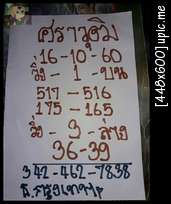 ศราวุฒิ
16-10-60
วิ่ง - 1 - บน
517 - 516
175 - 165
วิ่ง - 3 - ล่าง
36-39
342-462-7838
[448x600] upic.me